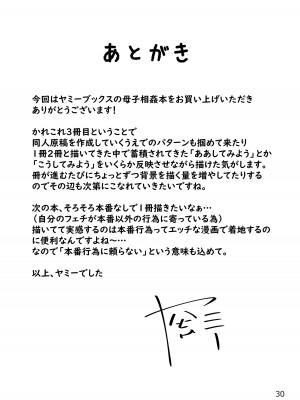 あとがき
今回はヤミーブックスの母子相姦本をお買い上げいただき
ありがとうございます！
かれこれ3冊目ということで
同人原稿を作成していくうえでのパターンも掴めて来たり
1冊2冊と描いてきた中で蓄積されてきた「ああしてみよう」とか
「こうしてみよう」をいくらか反映させながら描けた気がします。
冊が進むたびにちょっとずつ背景を描く量を増やしてたりする
のでその辺も次第にこなれていきたいですね。
次の本、そろそろ本番なしで1冊描きたいなぁ…
（自分のフェチが本番以外の行為に寄っている為）
描いてて実感するのは本番行為ってエッチな漫画で着地するの
に便利なんですよね～…
なので「本番行為に頼らない」という意味も込めて。
以上、ヤミーでした
30